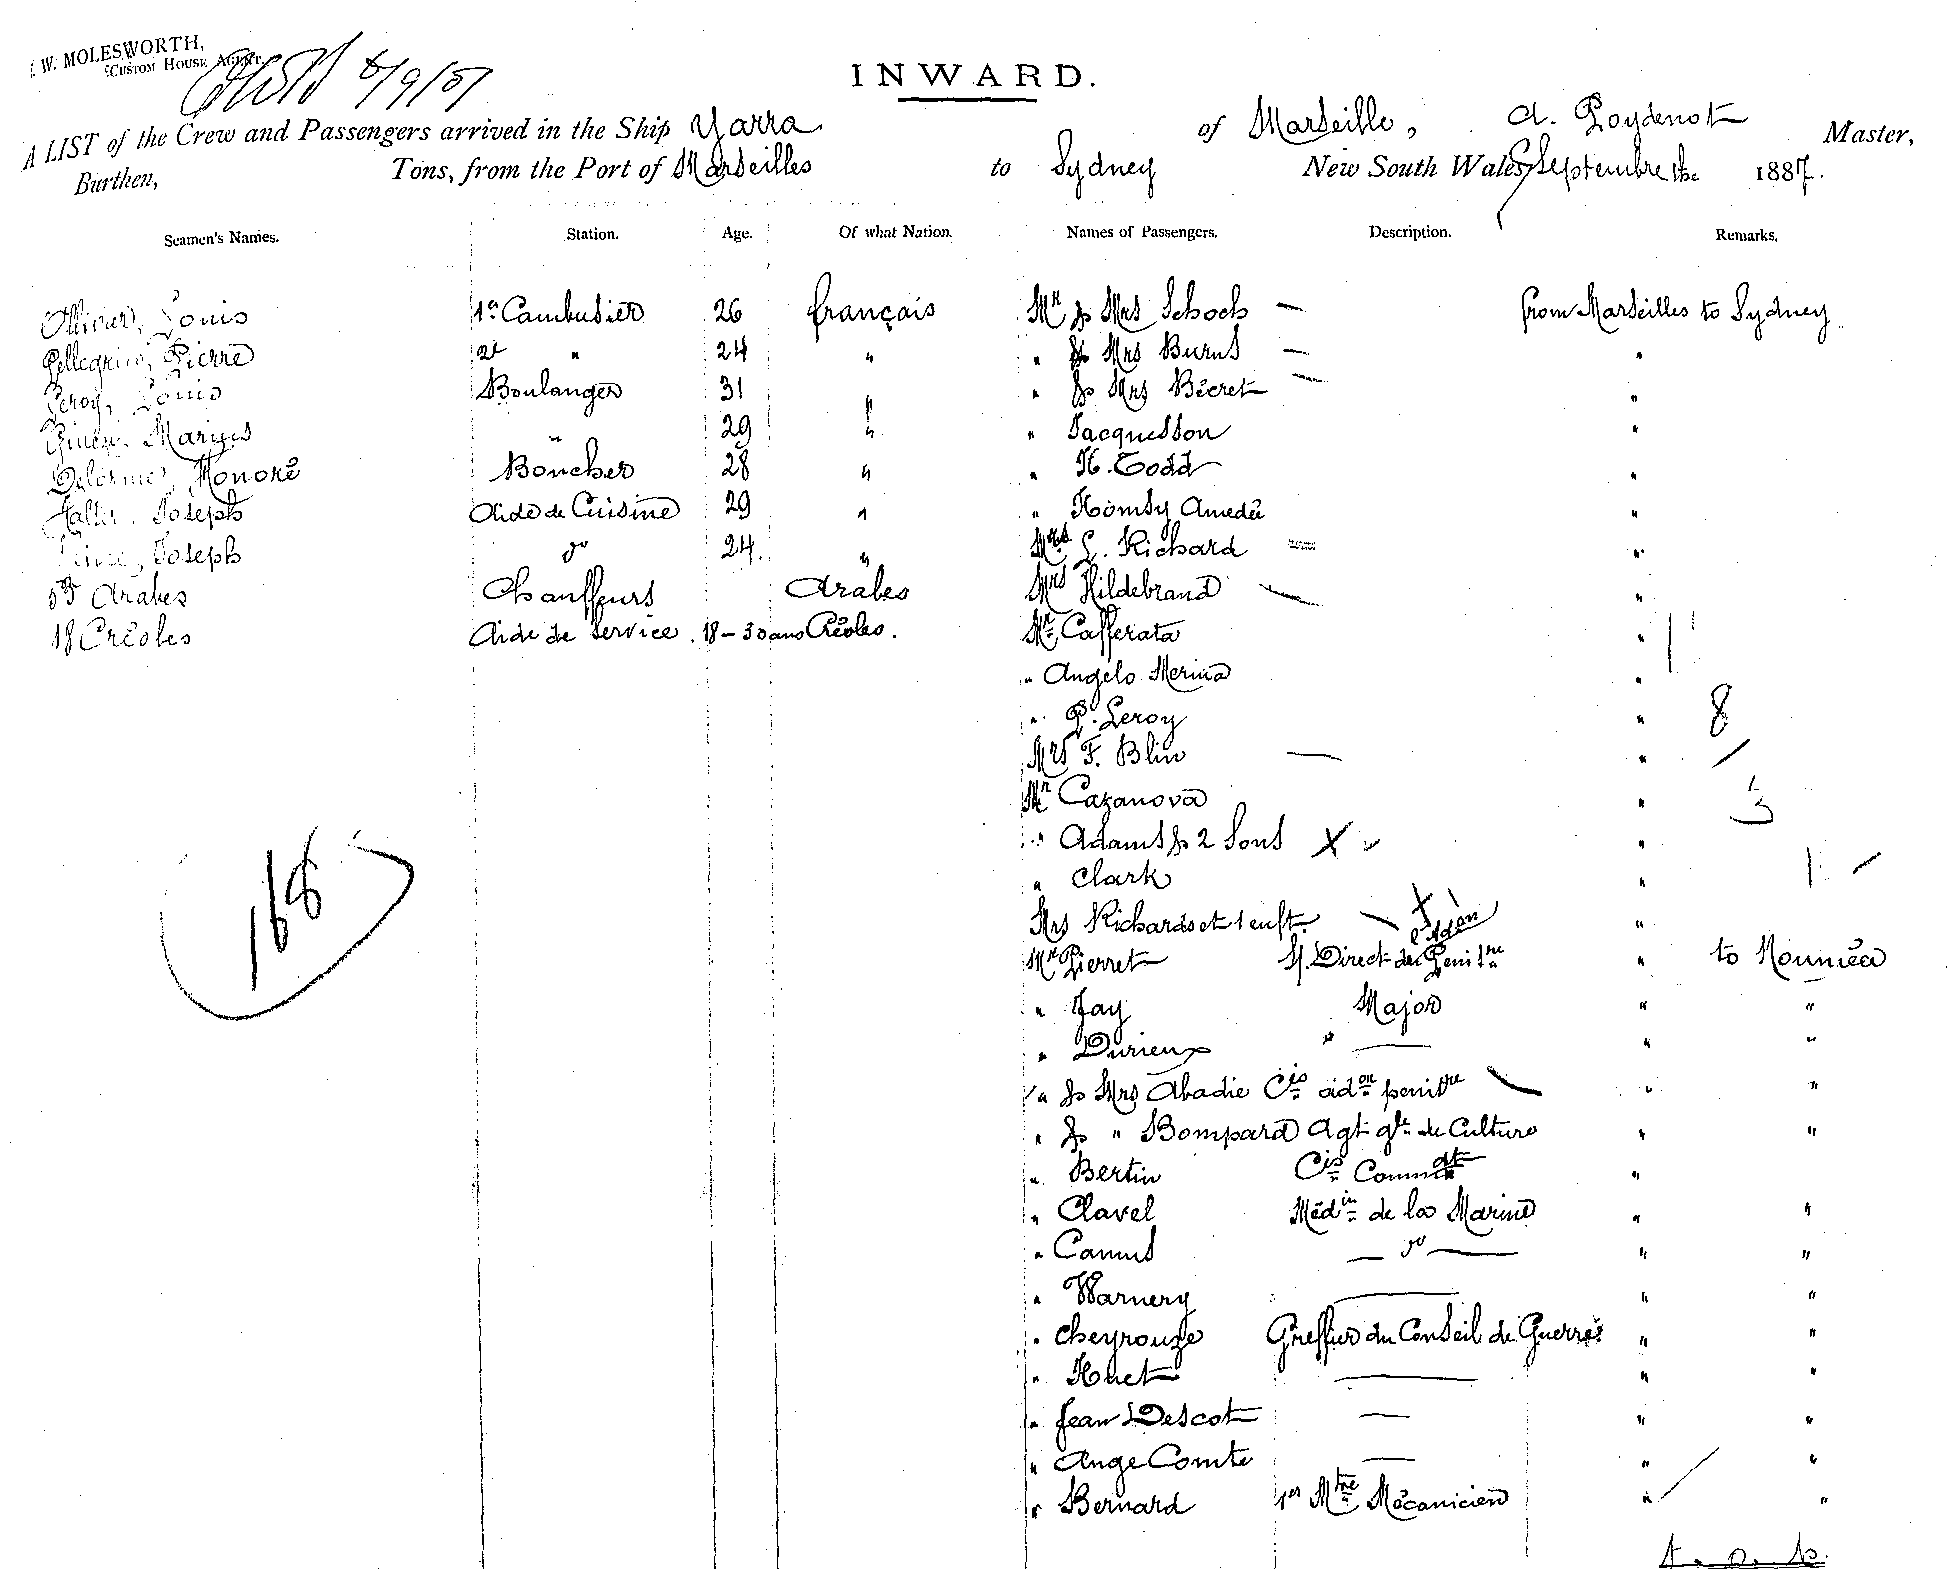 W. MOLESWORTH,
CUSTOM HOUSE AGENT.
INWARD.
A LIST of the Crew and Passengers arrived in the Ship Yarra of Marseille, A. Poydenot Master,
Burthen, Tons, from the Port of Marseilles to Sydney New South Wales, Septembre the 1887.
Seamen's Names. Station. Age. Of what Nation. Names of Passengers. Description. Remarks.
Ollivier, Louis 1er Cambusier 26 français Mr & Mrs Schoch — from Marseilles to Sydney
Pellegrin, Pierre 2e " 24 " " & Mrs Burns — "
Leroy, Louis Boulanger 31 " " & Mrs Bécret — "
Marius " 29 " " Jacquesson "
Delorme, Honoré Boucher 28 " " H. Todd "
Joseph Aide de Cuisine 29 " " Homsy Amedée "
Joseph do 24. " Mrs L. Richard "
Arabes Chauffeurs Arabes Mrs Hildebrand — "
18 Créoles Aide de service. 18-30 ans Créoles. Mr Cafferata "
" Angelo Merina "
" P. Leroy " 8
Mrs F. Blin — "
Mr Cazanova " 3
" Adams & 2 Sons X "
" Clark " 1
Mrs Richards et 1 enft. — X d'Adèn "
Mr Pierret S/. Direct. de Penitre " to Nouméa
" Jay Major " "
" Durieux " — " "
" & Mrs Abadie Cis adon penitre " "
" & " Bompard Agt gl de Culture " "
" Bertin Cis Commdt "
" Clavel Médin de la Marine " "
" Camus — do — " "
" Warnery — " "
" Cheyrouze Greffier du Conseil de Guerre " "
" Huet — " "
" Jean Descot — " "
" Ange Comte — " "
" Bernard 1er Mtre Mécanicien " "
168